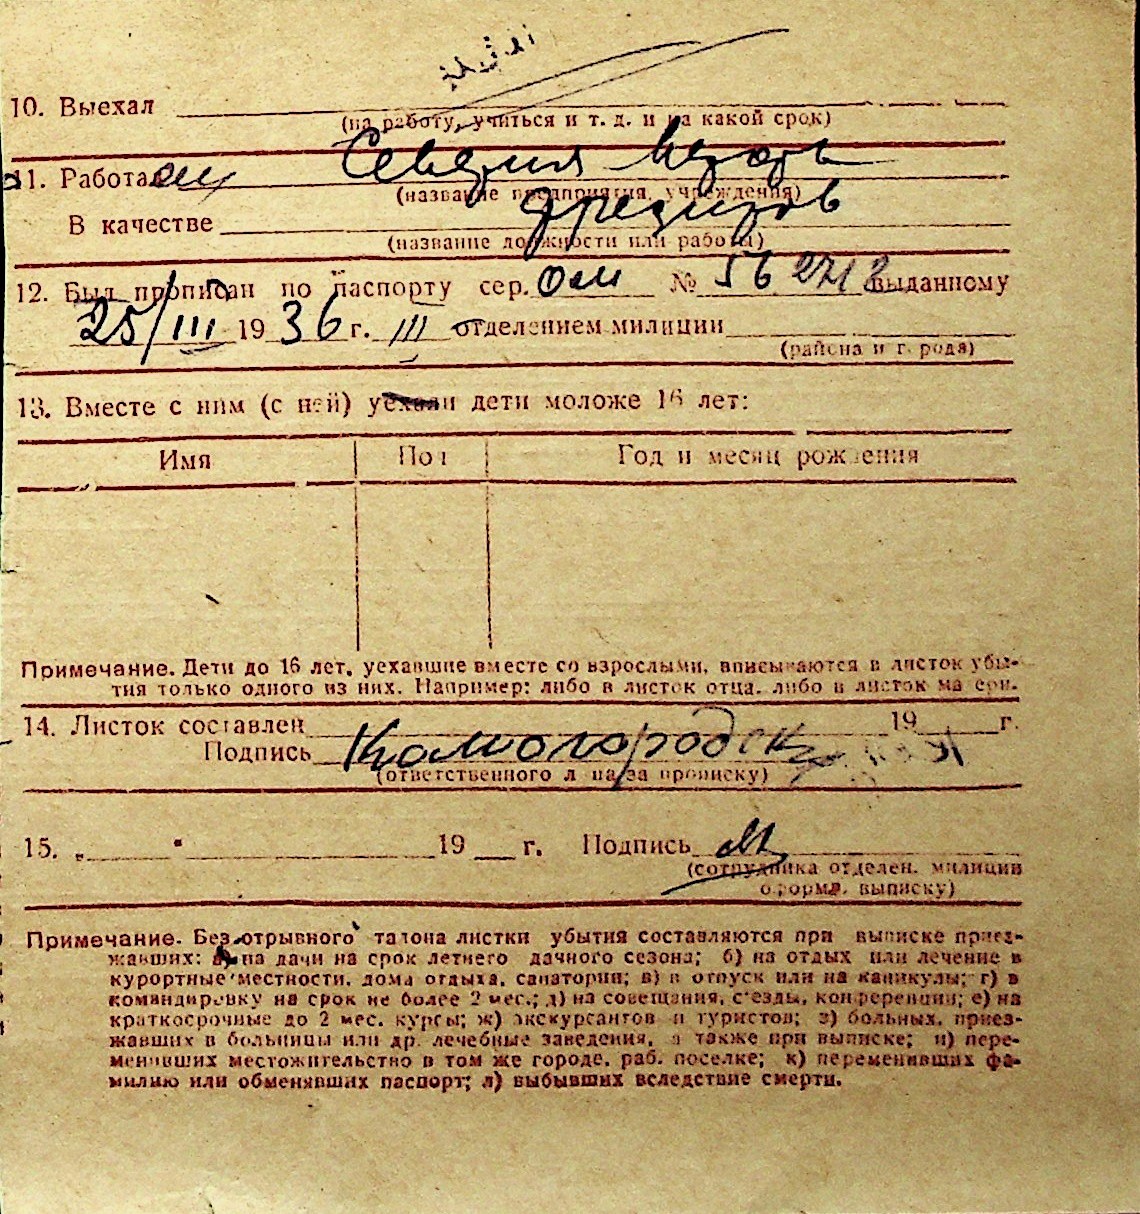 10. Выехал
(на работу, учиться и т. д. и на какой срок)
11. Работал
(название предприятия, учреждения)
В качестве
(название должности или работы)
12. Был прописан по паспорту сер. № 56 2712 выданному
25/III 1936 г. III отделением милиции
(района и города)
13. Вместе с ним (с ней) уехали дети моложе 16 лет:
Имя Пол Год и месяц рождения
Примечание. Дети до 16 лет, уехавшие вместе со взрослыми, вписываются в листок убы-
тия только одного из них. Например: либо в листок отца, либо в листок матери.
14. Листок составлен 19 г.
Подпись
(ответственного лица за прописку)
15. „ " 19 г. Подпись
(сотрудника отделен. милиции
оформл. выписку)
Примечание. Без отрывного талона листки убытия составляются при выписке приез-
жавших: а) на дачи на срок летнего дачного сезона; б) на отдых или лечение в
курортные местности, дома отдыха, санатории; в) в отпуск или на каникулы; г) в
командировку на срок не более 2 мес.; д) на совещания, съезды, конференции; е) на
краткосрочные до 2 мес. курсы; ж) экскурсантов и туристов; з) больных, приез-
жавших в больницы или др. лечебные заведения, а также при выписке; и) пере-
менивших местожительство в том же городе, раб. поселке; к) переменивших фа-
милию или обменявших паспорт; л) выбывших вследствие смерти.